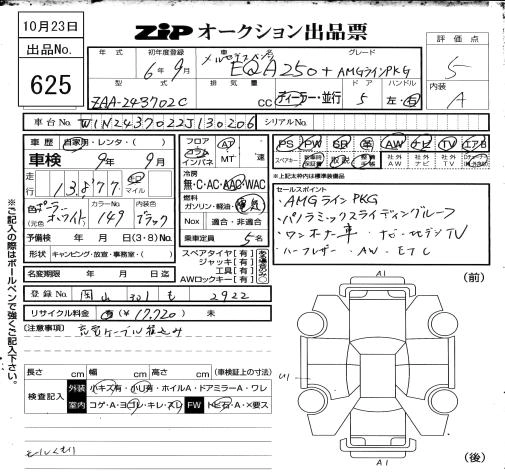 10月23日
ZIP オークション出品票
出品No.
625
年式
初年度登録
車名
グレード
6年9月
メルセデスベンツ
EQA250+ AMGラインPKG
型式
排気量
ドア
ハンドル
ZAA-243702C
cc
ディーラー・並行
5
左・右
評価点
5
内装
A
車台No.
W1N2437022J130206
シリアルNo.
車歴
自家用・レンタ・( )
車検
9年9月
走行
マイル
色
ポーラーホワイト
(元色
カラーNo.
149
内装色
ブラック
予備検 年 月 日(3・8)No.
形状 キャンピング・放宣・事務室・( )
名変期限 年 月 日迄
フロア
コラム
インパネ
AT
MT
速
冷房
無・C・AC・AAC・WAC
燃料
ガソリン・軽油・電気
Nox 適合・非適合
乗車定員 5名
スペアタイヤ[有]
ジャッキ[有]
工具[有]
AWロックキー[有]
PS PW SR 革 AW ナビ TV エアB
スペアカー
社外AW
社外ナビ
社外TV
★上記太わくは標準装備品
セールスポイント
・AMGラインPKG
・パノラミックスライディングルーフ
・ワンオーナー車・ナビ・地デジTV
・ハーフレザー・AW・ETC
登録No. 岡山 301 も 2922
リサイクル料金 有(¥17,720) 未
(注意事項)
充電ケーブル積込み
長さ cm 幅 cm 高さ cm (車検証上の寸法)
検査記入
外装 小キズ有・小凹有・ホイルA・ドアミラーA・ワレ
室内 コゲ・A・ヨゴレ・キレ・スレ
FW トビ石・A・×要ス
※ご記入の際はボールペンで強くご記入下さい。
A1
(前)
U1
A1
(後)